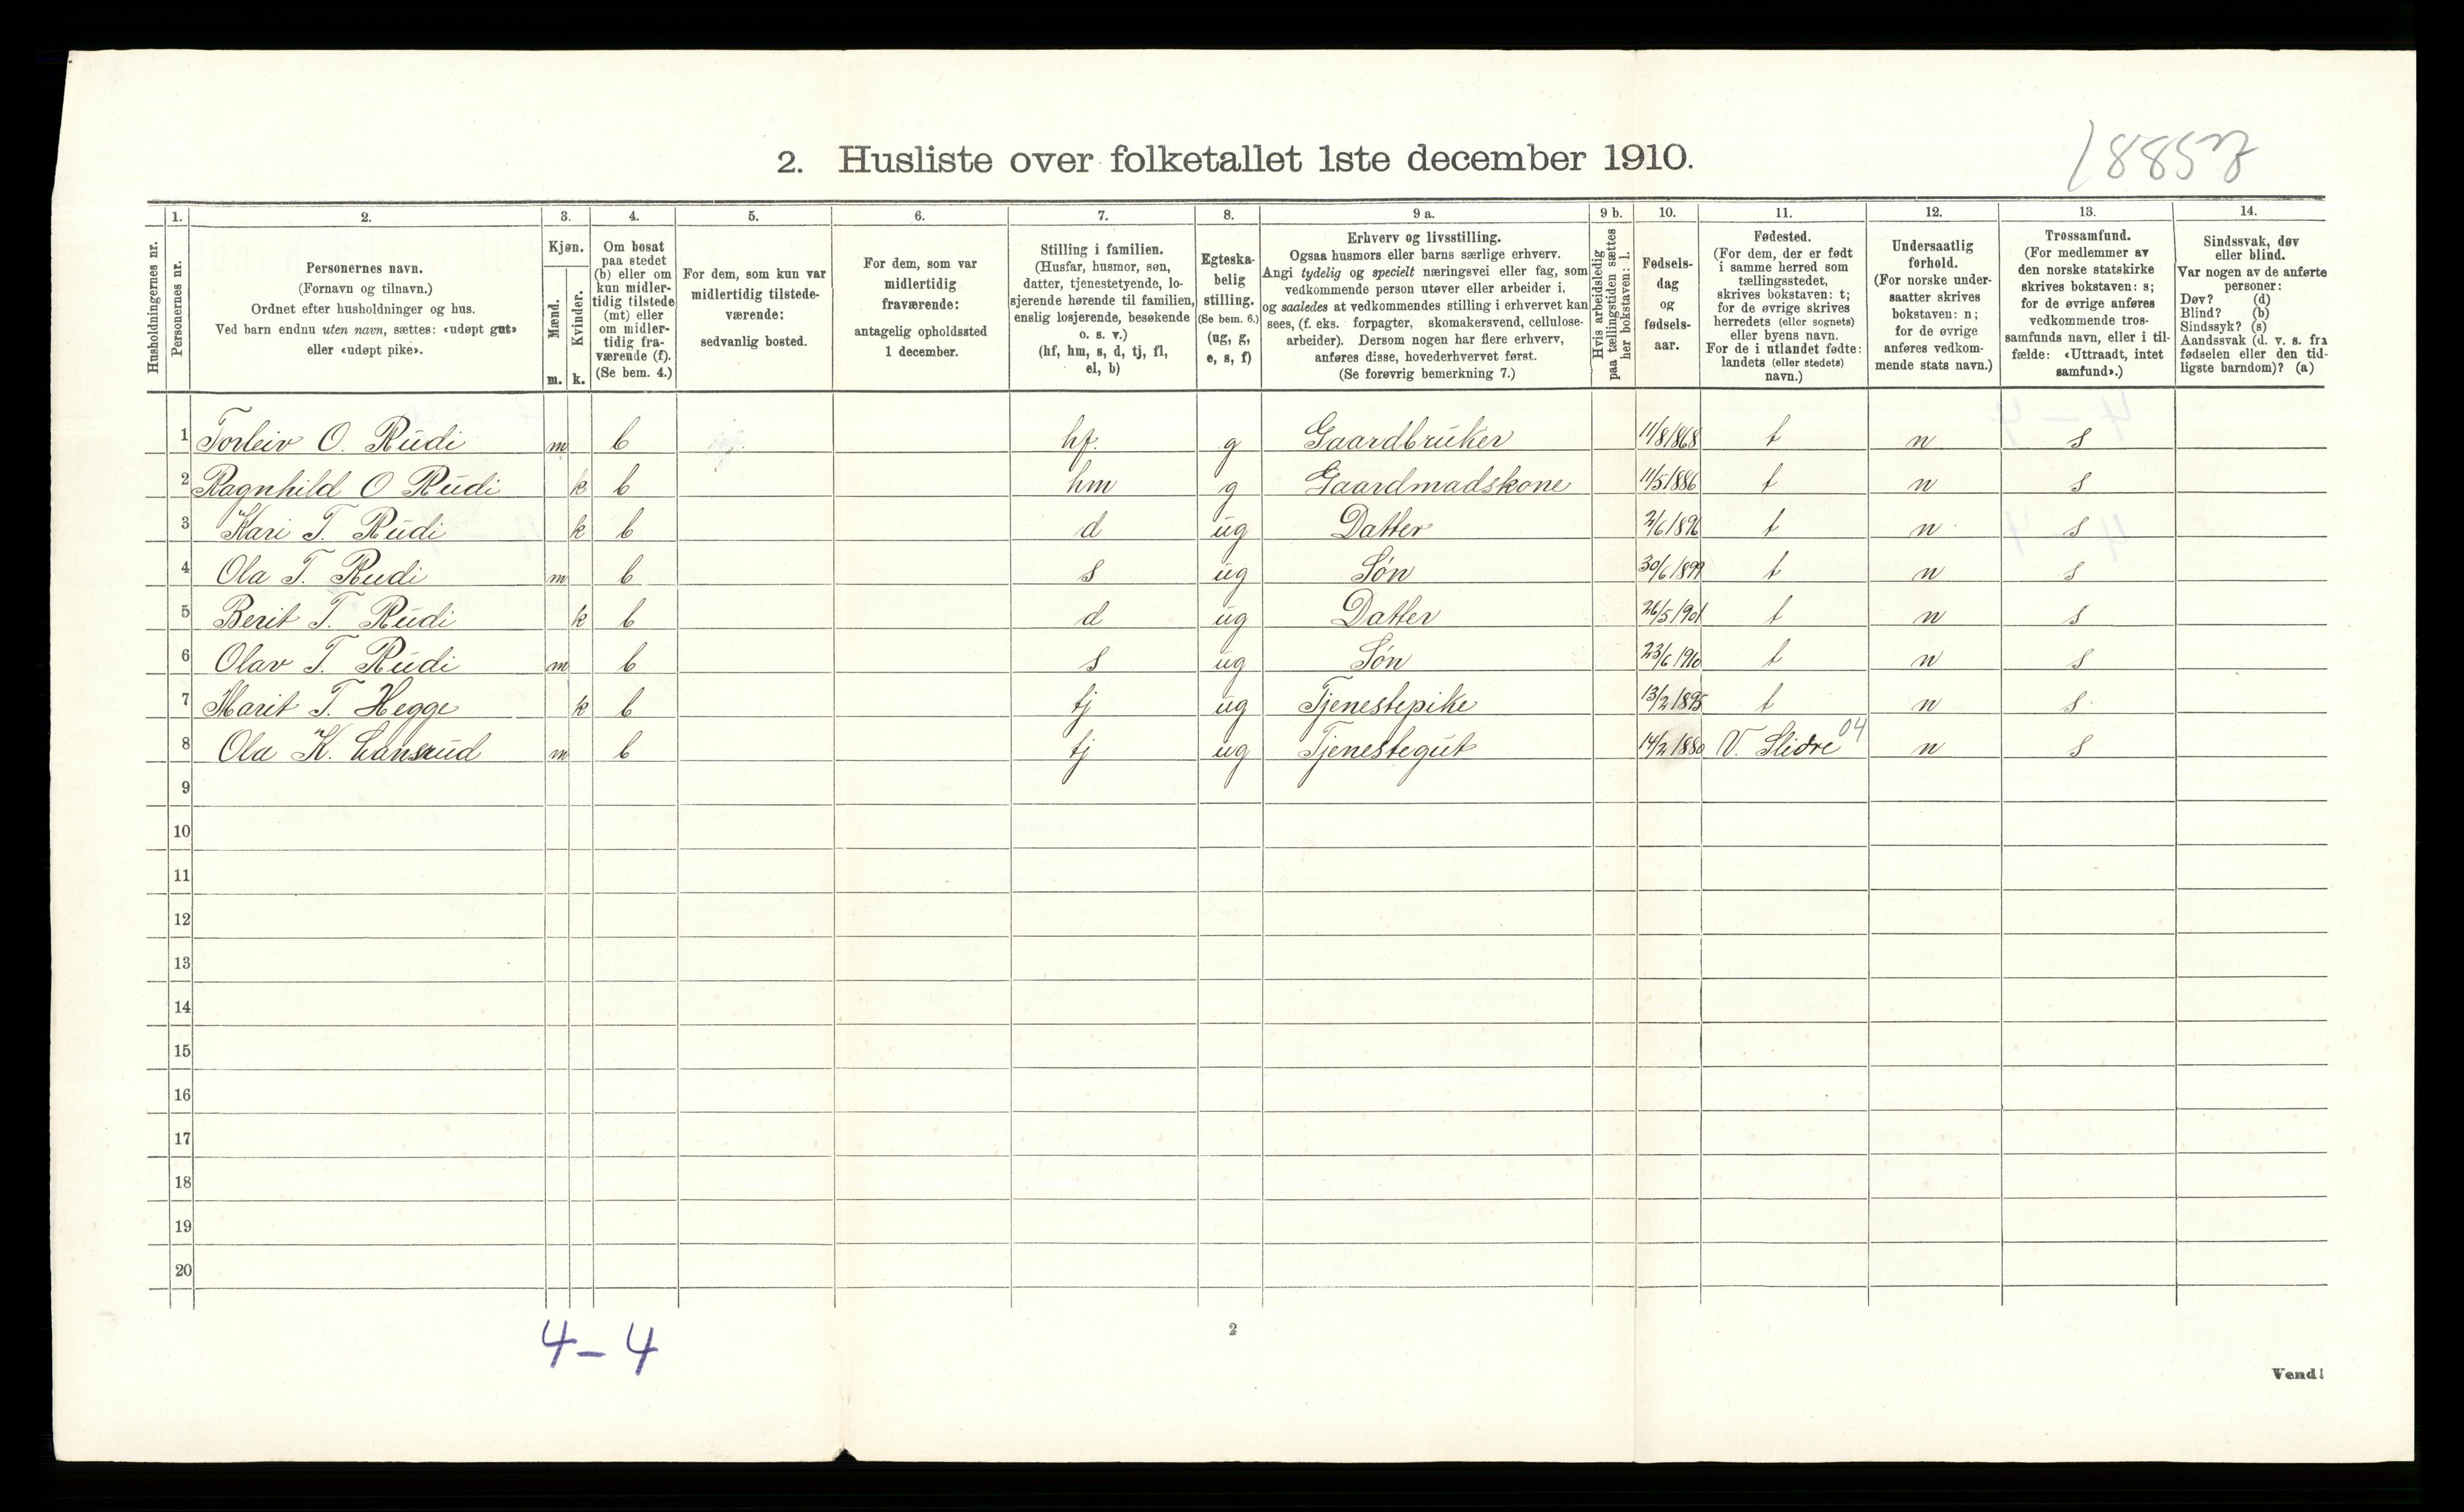 18852
2. Husliste over folketallet 1ste december 1910.
Husholdningernes nr.
1. Personernes nr.
2. Personernes navn.
(Fornavn og tilnavn.)
Ordnet efter husholdninger og hus.
Ved barn endnu uten navn, sættes: «udøpt gut»
eller «udøpt pike».
3. Kjøn.
Mænd. m.
Kvinder. k.
4. Om bosat
paa stedet
(b) eller om
kun midler-
tidig tilstede
(mt) eller
om midler-
tidig fra-
værende (f).
(Se bem. 4.)
5. For dem, som kun var
midlertidig tilstede-
værende:
sedvanlig bosted.
6. For dem, som var
midlertidig
fraværende:
antagelig opholdssted
1 december.
7. Stilling i familien.
(Husfar, husmor, søn,
datter, tjenestetyende, lo-
sjerende hørende til familien,
enslig losjerende, besøkende
o. s. v.)
(hf, hm, s, d, tj, fl,
el, b)
8. Egteska-
belig
stilling.
(Se bem. 6.)
(ug, g,
e, s, f)
9 a. Erhverv og livsstilling.
Ogsaa husmors eller barns særlige erhverv.
Angi tydelig og specielt næringsvei eller fag, som
vedkommende person utøver eller arbeider i,
og saaledes at vedkommendes stilling i erhvervet kan
sees, (f. eks. forpagter, skomakersvend, cellulose-
arbeider). Dersom nogen har flere erhverv,
anføres disse, hovederhvervet først.
(Se forøvrig bemerkning 7.)
9 b. Hvis arbeidsledig
paa tællingstiden sættes
her bokstaven: l.
10. Fødsels-
dag
og
fødsels-
aar.
11. Fødested.
(For dem, der er født
i samme herred som
tællingsstedet,
skrives bokstaven: t;
for de øvrige skrives
herredets (eller sognets)
eller byens navn.
For de i utlandet fødte:
landets (eller stedets)
navn.)
12. Undersaatlig
forhold.
(For norske under-
saatter skrives
bokstaven: n;
for de øvrige
anføres vedkom-
mende stats navn.)
13. Trossamfund.
(For medlemmer av
den norske statskirke
skrives bokstaven: s;
for de øvrige anføres
vedkommende tros-
samfunds navn, eller i til-
fælde: «Uttraadt, intet
samfund».)
14. Sindssvak, døv
eller blind.
Var nogen av de anførte
personer:
Døv? (d)
Blind? (b)
Sindssyk? (s)
Aandssvak (d. v. s. fra
fødselen eller den tid-
ligste barndom)? (a)
1 Torleiv O. Rudi m b hf. g Gaardbruker 11/8 1868 t n s
2 Ragnhild O Rudi k b hm g Gaardmadskone 11/5 1886 t n s
3 Kari T. Rudi k b d ug Datter 2/6 1896 t n s
4 Ola T. Rudi m b s ug Søn 30/6 1899 t n s
5 Berit T. Rudi k b d ug Datter 26/5 1901 t n s
6 Olav T. Rudi m b s ug Søn 23/6 1910 t n s
7 Marit T. Hegge k b tj ug Tjenestepike 13/2 1895 t n s
8 Ola K. m b tj ug Tjenestegut 14/2 1880 V. Slidre 04 n s
9
10
11
12
13
14
15
16
17
18
19
20
4 – 4
2
Vend!